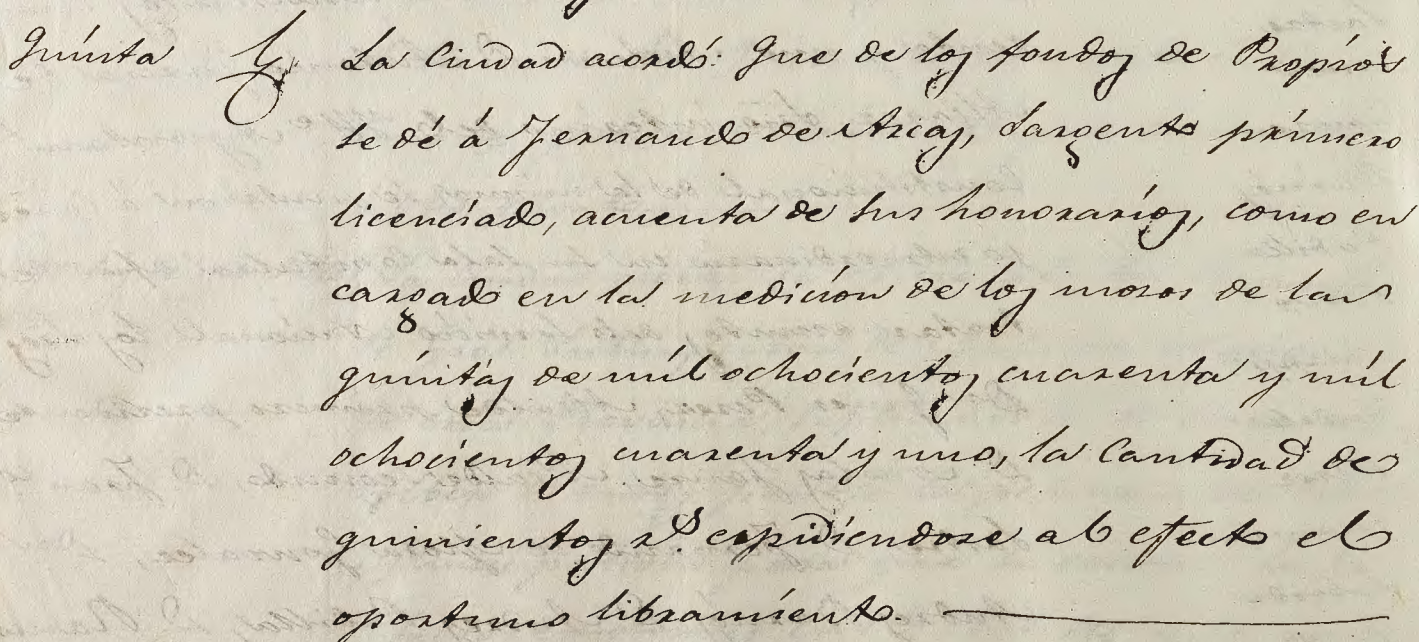 Quinta La Ciudad acordó: Que de los fondos de Propios
se dé á Fernando de Arcas, Sargento primero
licenciado, acuenta de sus honorarios, como en
cargado en la medicion de los mozos de las
quintas de mil ochocientos cuarenta y mil
ochocientos cuarenta y uno, la Cantidad de
quinientos rs. espidiendose al efecto el
oportuno libramiento.